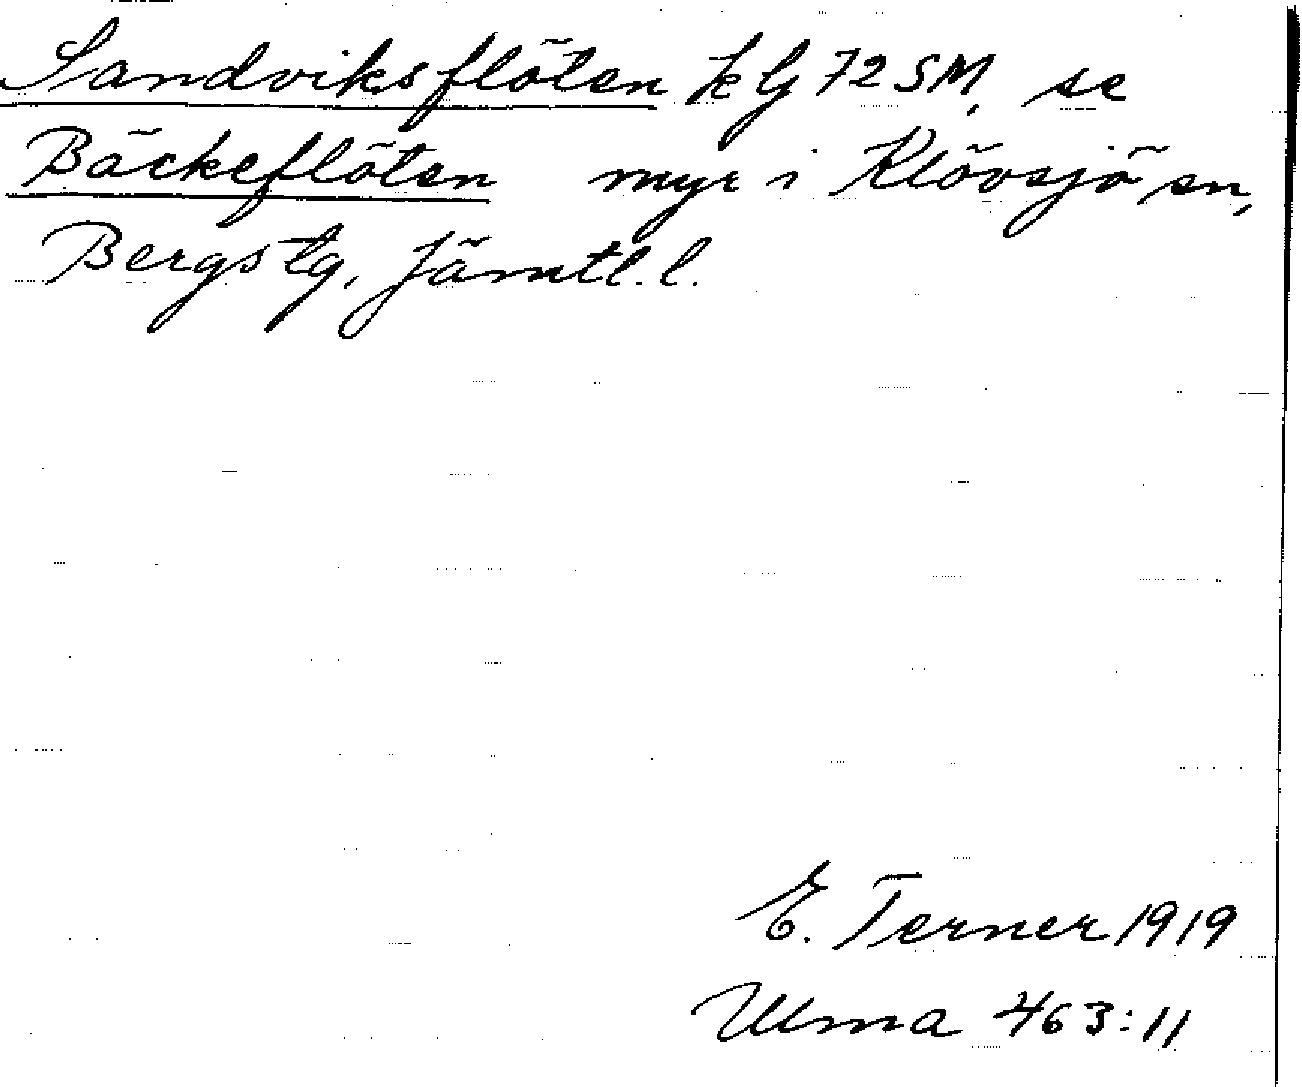 Sandviksflöten kG 72 SM, se
Bäckeflöten myr i Klövsjö sn,
Bergs tg, Jämtl. l.
E. Terner 1919
Ulma 463:11